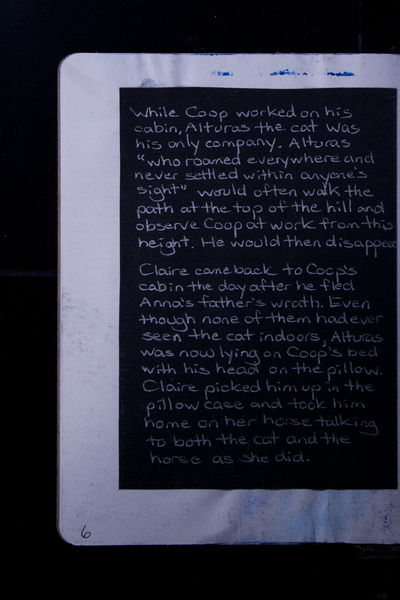 While Coop worked on his
cabin, Alturas the cat was
his only company. Alturas
"who roamed everywhere and
never settled within anyone's
sight" would often walk the
path at the top of the hill and
observe Coop at work from this
height. He would then disappear
Claire came back to Coop's
cabin the day after he fled
Anna's father's wrath. Even
though none of them had ever
seen the cat indoors, Alturas
was now lying on Coop's bed
with his head on the pillow.
Claire picked him up in the
pillow case and took him
home on her horse talking
to both the cat and the
horse as she did.
6